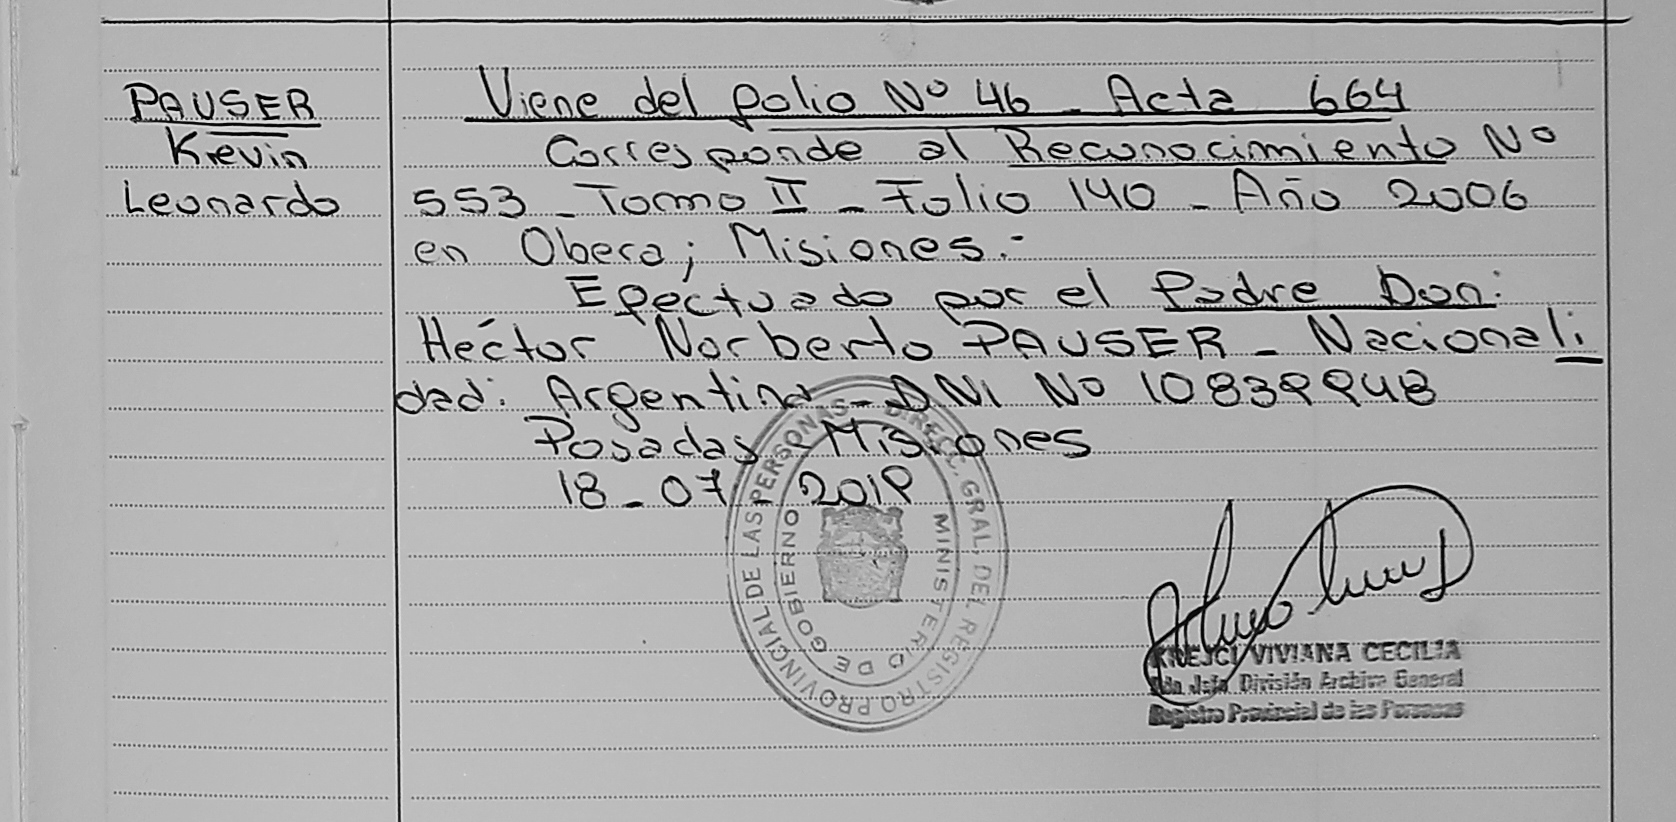 PAUSER
Kevin
Leonardo
Viene del folio Nº 46 - Acta 664
Corresponde al Reconocimiento Nº
553 - Tomo II - Folio 140 - Año 2006
en Obera; Misiones.-
Efectuado por el Padre Don:
Héctor Norberto PAUSER - Nacionali
dad: Argentina - DNI Nº 10839948
Posadas Misiones
18-07-2019
DIRECC. GRAL. DEL REGISTRO PROVINCIAL DE LAS PERSONAS
MINISTERIO DE GOBIERNO
KREJCI VIVIANA CECILIA
Jefa División Archivo General
Registro Provincial de las Personas